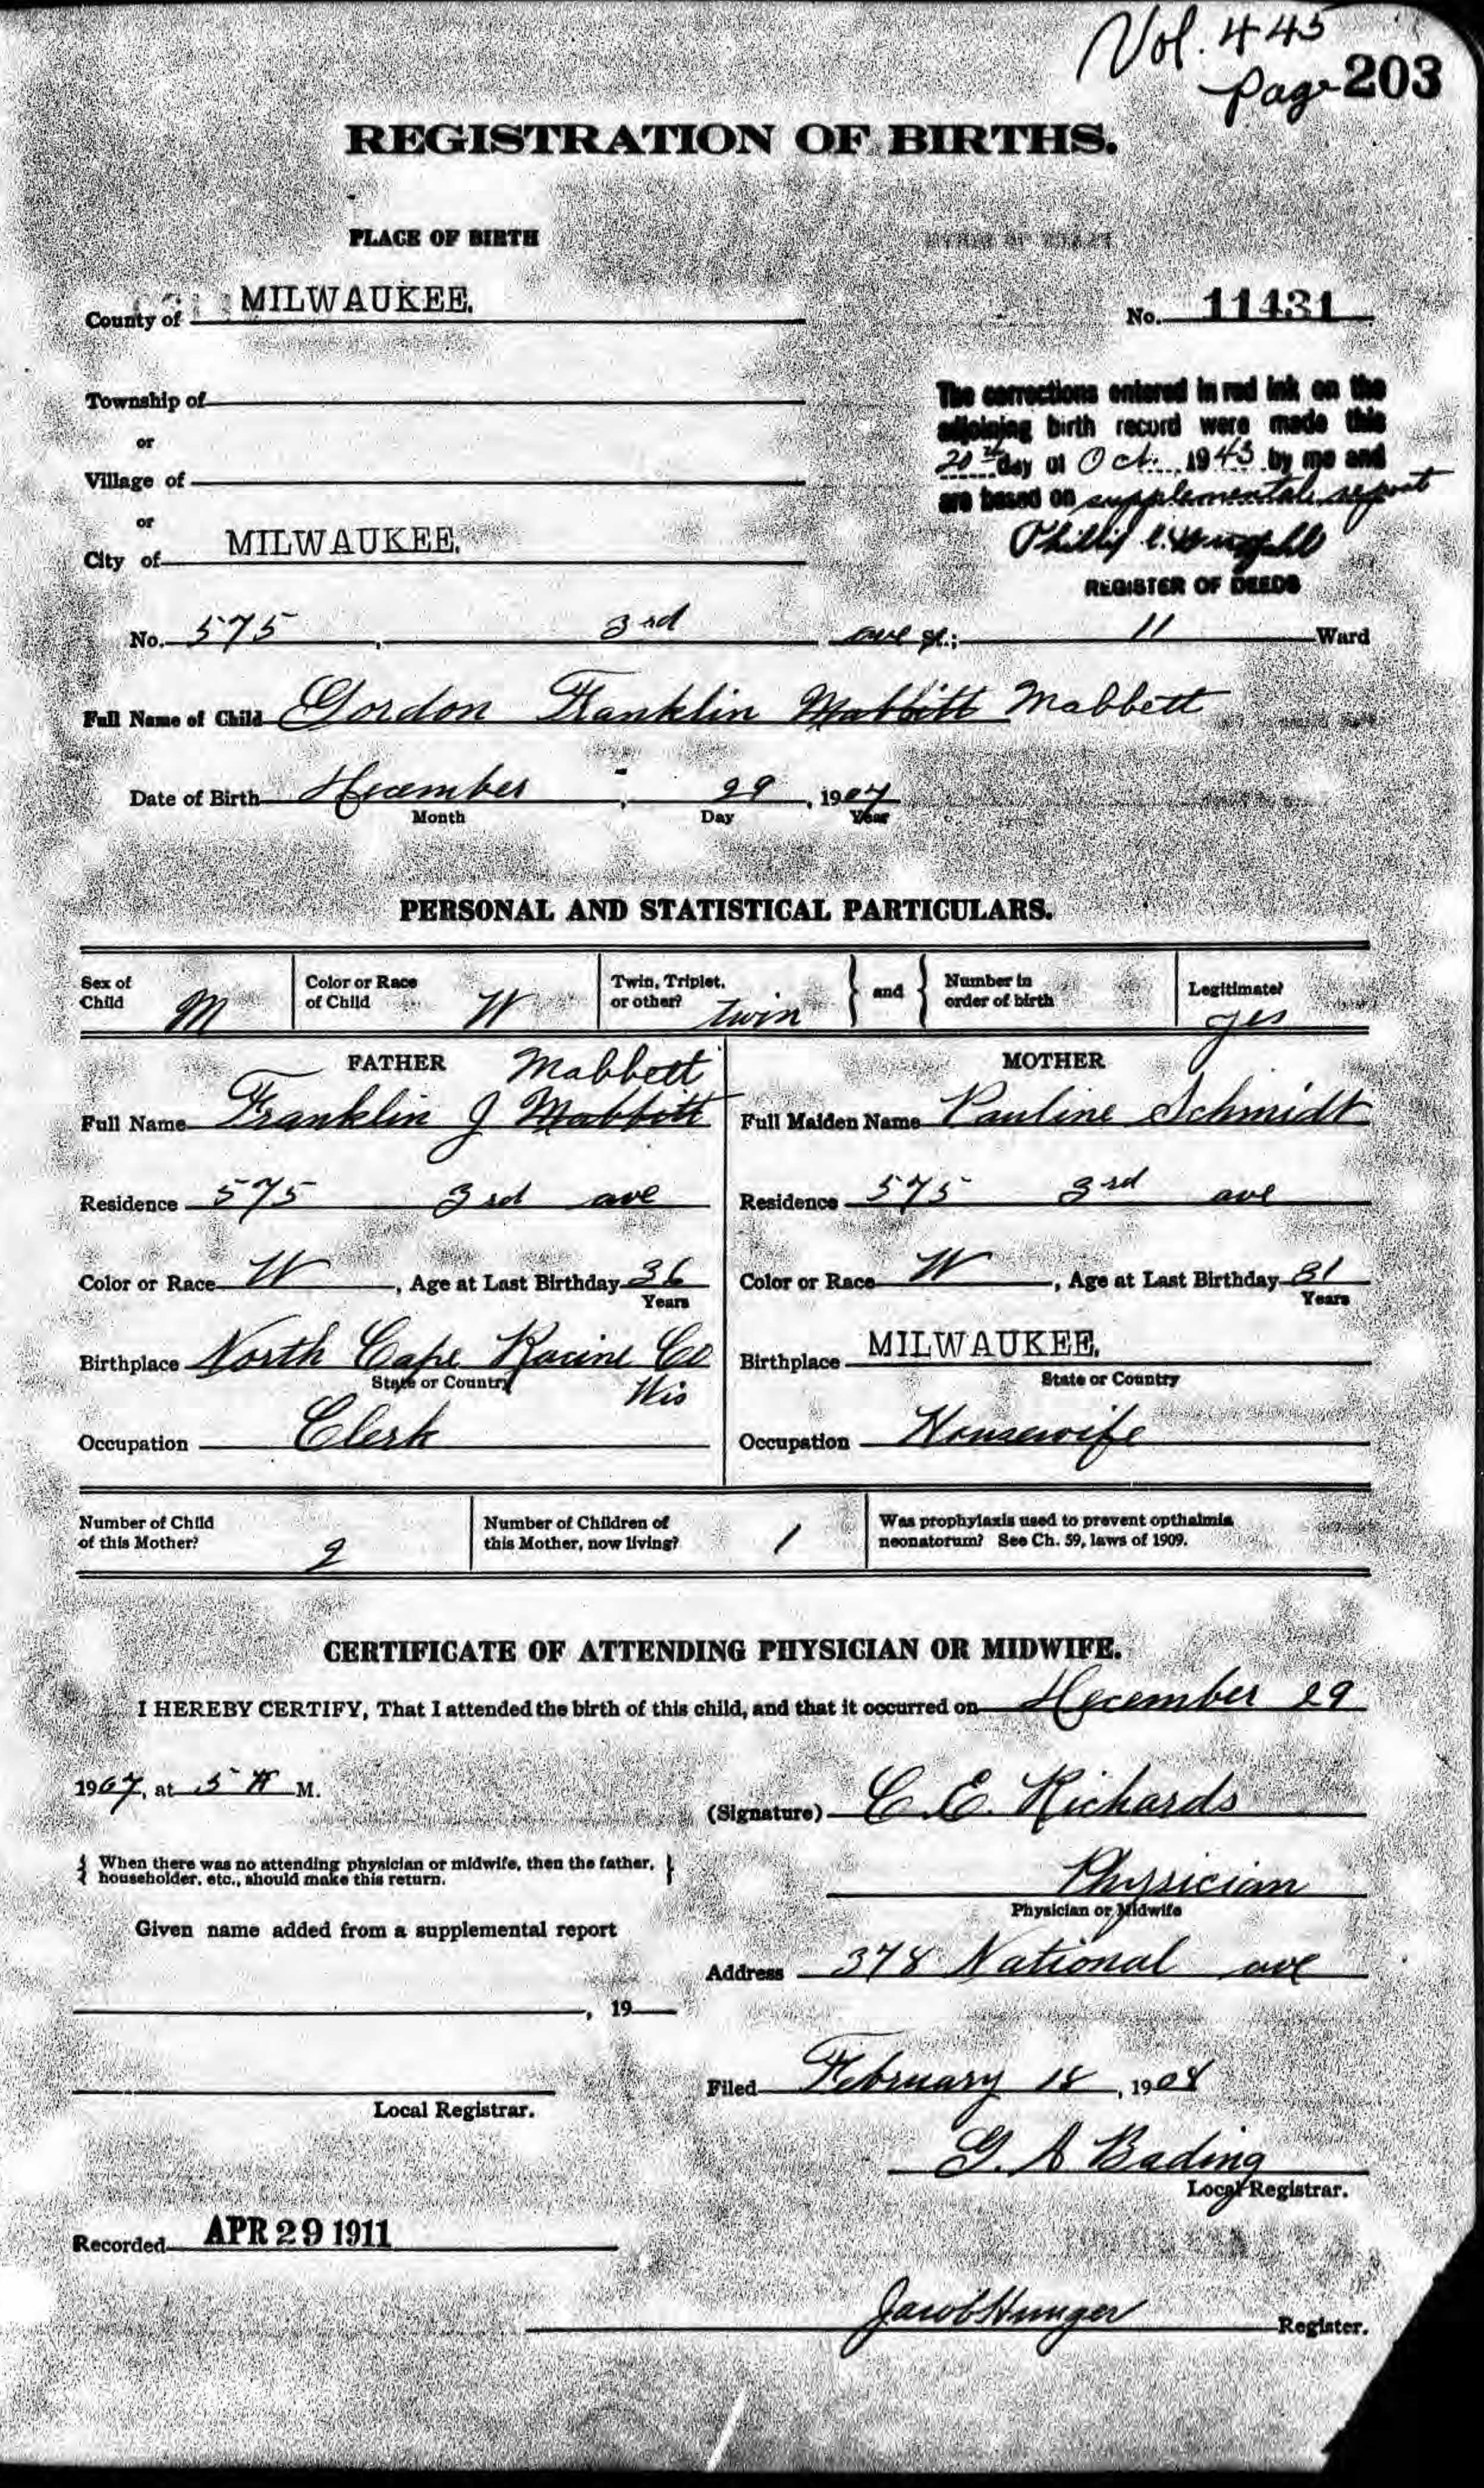 Vol. 445
Page 203
REGISTRATION OF BIRTHS.
PLACE OF BIRTH
County of MILWAUKEE.
No. 11431
Township of
or
Village of
or
City of MILWAUKEE.
The corrections entered in red ink on the
adjoining birth record were made this
20th day of Oct. 1943 by me and
are based on supplemental report
Phillip C.
REGISTER OF DEEDS
No. 575, 3rd ave St.; 11 Ward
Full Name of Child Gordon Franklin Mabbitt Mabbett
Date of Birth December, 29, 1907
Month Day Year
PERSONAL AND STATISTICAL PARTICULARS.
Sex of Child M
Color or Race of Child W
Twin, Triplet, or other? twin
and
Number in order of birth
Legitimate? yes
FATHER
Mabbett
Full Name Franklin J Mabbitt
Residence 575 3rd ave
Color or Race W, Age at Last Birthday 36
Years
Birthplace North Cape Racine Co
State or Country Wis
Occupation Clerk
MOTHER
Full Maiden Name Pauline Schmidt
Residence 575 3rd ave
Color or Race W, Age at Last Birthday 31
Years
Birthplace MILWAUKEE.
State or Country
Occupation Housewife
Number of Child of this Mother? 2
Number of Children of this Mother, now living? 1
Was prophylaxis used to prevent opthalmia
neonatorum? See Ch. 59, laws of 1909.
CERTIFICATE OF ATTENDING PHYSICIAN OR MIDWIFE.
I HEREBY CERTIFY, That I attended the birth of this child, and that it occurred on December 29
1907, at 5 A M.
(Signature) C. E. Richards
{ When there was no attending physician or midwife, then the father,
householder, etc., should make this return. }
Physician
Physician or Midwife
Given name added from a supplemental report
Address 378 National ave
, 19
Filed February 18, 1908
Local Registrar.
G. A Bading
Local Registrar.
Recorded APR 29 1911
Jacob Hunger Register.